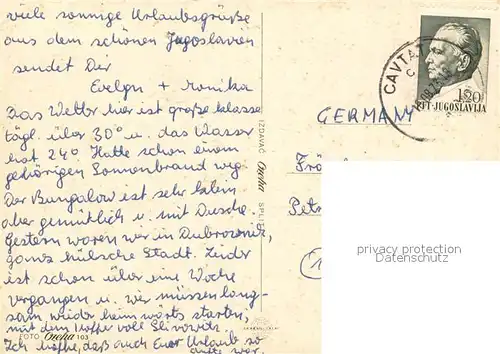 viele sonnige Urlaubsgrüße
aus dem schönen Jugoslavien
sendet Dir
Evelyn + Monika
Das Wetter hier ist große Klasse
tägl. über 30° u. das Wasser
hat 24° Hatte schon einen
gehörigen Sonnenbrand weg
Der Bungalow ist sehr klein
aber gemütlich u. mit Dusche.
Gestern waren wir in Dubrovnik,
ganz hübsche Stadt. Leider
ist schon über eine Woche
vergangen u. wir müssen lang-
sam wieder heimwärts starten,
mit dem Koffer voll Slivowitz.
Ich hoffe, daß auch Euer Urlaub so
war.
FOTO 103
IZDAVAČ SPLIT
CAVTAT
1.20
PTT-JUGOSLAVIJA
GERMANY
Frö
Pet
privacy protection
Datenschutz